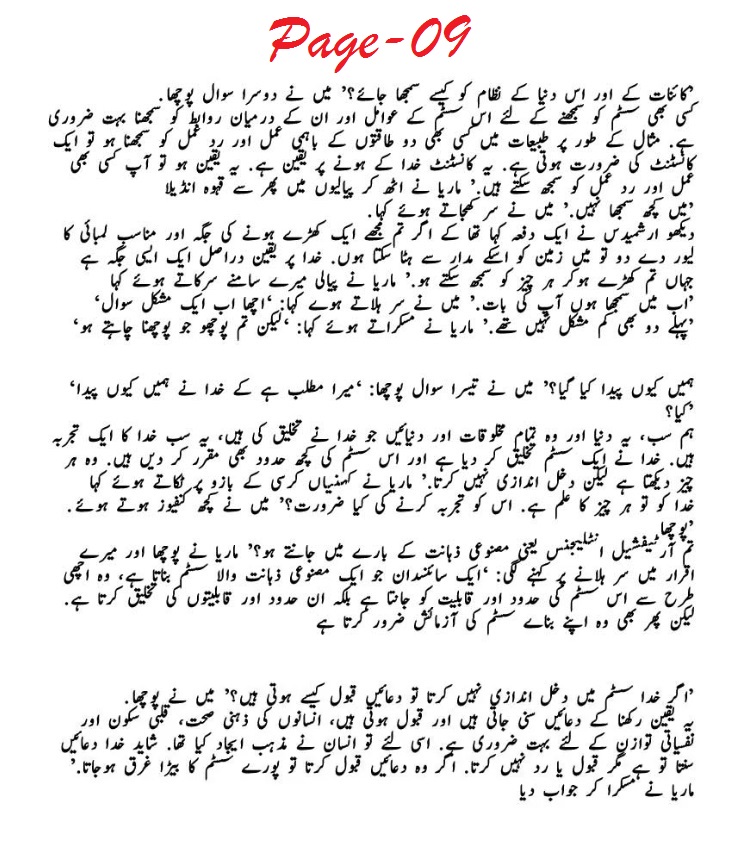 Page-09
'کائنات کے اور اس دنیا کے نظام کو کیسے سمجھا جائے؟' میں نے دوسرا سوال پوچھا.
کسی بھی سسٹم کو سمجھنے کے لئے اس سسٹم کے عوامل اور ان کے درمیان روابط کو سمجھنا بہت ضروری
ہے. مثال کے طور پر طبیعات میں کسی بھی دو طاقتوں کے باہمی عمل اور رد عمل کو سمجھنا ہو تو ایک
کانسٹنٹ کی ضرورت ہوتی ہے. یہ کانسٹنٹ خدا کے ہونے پر یقین ہے. یہ یقین ہو تو آپ کسی بھی
عمل اور رد عمل کو سمجھ سکتے ہیں.' ماریا نے اٹھ کر پیالیوں میں پھر سے قہوہ انڈیلا
'میں کچھ سمجھا نہیں.' میں نے سر کھجاتے ہوئے کہا.
دیکھو ارشمیدس نے ایک دفعہ کہا تھا کے اگر تم مجھے ایک کھڑے ہونے کی جگہ اور مناسب لمبائی کا
لیور دے دو تو میں زمین کو اسکے مدار سے ہٹا سکتا ہوں. خدا پر یقین دراصل ایک ایسی جگہ ہے
جہاں تم کھڑے ہوکر ہر چیز کو سمجھ سکتے ہو.' ماریا نے پیالی میرے سامنے سرکاتے ہوئے کہا
'اب میں سمجھا ہوں آپ کی بات.' میں نے سر ہلاتے ہوے کہا: 'اچھا اب ایک مشکل سوال'
'پہلے دو بھی کم مشکل نہیں تھے.' ماریا نے مسکراتے ہوئے کہا: 'لیکن تم پوچھو جو پوچھنا چاہتے ہو'
ہمیں کیوں پیدا کیا گیا؟' میں نے تیسرا سوال پوچھا: 'میرا مطلب ہے کے خدا نے ہمیں کیوں پیدا'
'کیا؟
ہم سب، یہ دنیا اور وہ تمام مخلوقات اور دنیائیں جو خدا نے تخلیق کی ہیں، یہ سب خدا کا ایک تجربہ
ہیں. خدا نے ایک سسٹم تخلیق کر دیا ہے اور اس سسٹم کی کچھ حدود بھی مقرر کر دیں ہیں. وہ ہر
چیز دیکھتا ہے لیکن دخل اندازی نہیں کرتا.' ماریا نے کہنیاں کرسی کے بازو پر ٹکاتے ہوئے کہا
خدا کو تو ہر چیز کا علم ہے. اس کو تجربہ کرنے کی کیا ضرورت؟' میں نے کچھ کنفیوز ہوتے ہوئے.
'پوچھا
تم آرٹیفشیل انٹلیجنس یعنی مصنوعی ذہانت کے بارے میں جانتے ہو؟' ماریا نے پوچھا اور میرے
اقرار میں سر ہلانے پر کہنے لگی: 'ایک سائنسدان جو ایک مصنوعی ذہانت والا سسٹم بناتا ہے، وہ اچھی
طرح سے اس سسٹم کی حدود اور قابلیت کو جانتا ہے بلکہ ان حدود اور قابلیتوں کی تخلیق کرتا ہے.
لیکن پھر بھی وہ اپنے بناے سسٹم کی آزمائش ضرور کرتا ہے
'اگر خدا سسٹم میں دخل اندازی نہیں کرتا تو دعائیں قبول کیسے ہوتی ہیں؟' میں نے پوچھا.
یہ یقین رکھنا کے دعائیں سنی جاتی ہیں اور قبول ہوتی ہیں، انسانوں کی ذہنی صحت، قلبی سکون اور
نفسیاتی توازن کے لئے بہت ضروری ہے. اسی لئے تو انسان نے مذہب ایجاد کیا تھا. شاید خدا دعائیں
سنتا تو ہے مگر قبول یا رد نہیں کرتا. اگر وہ دعائیں قبول کرتا تو پورے سسٹم کا بیڑا غرق ہوجاتا.'
ماریا نے مسکرا کر جواب دیا